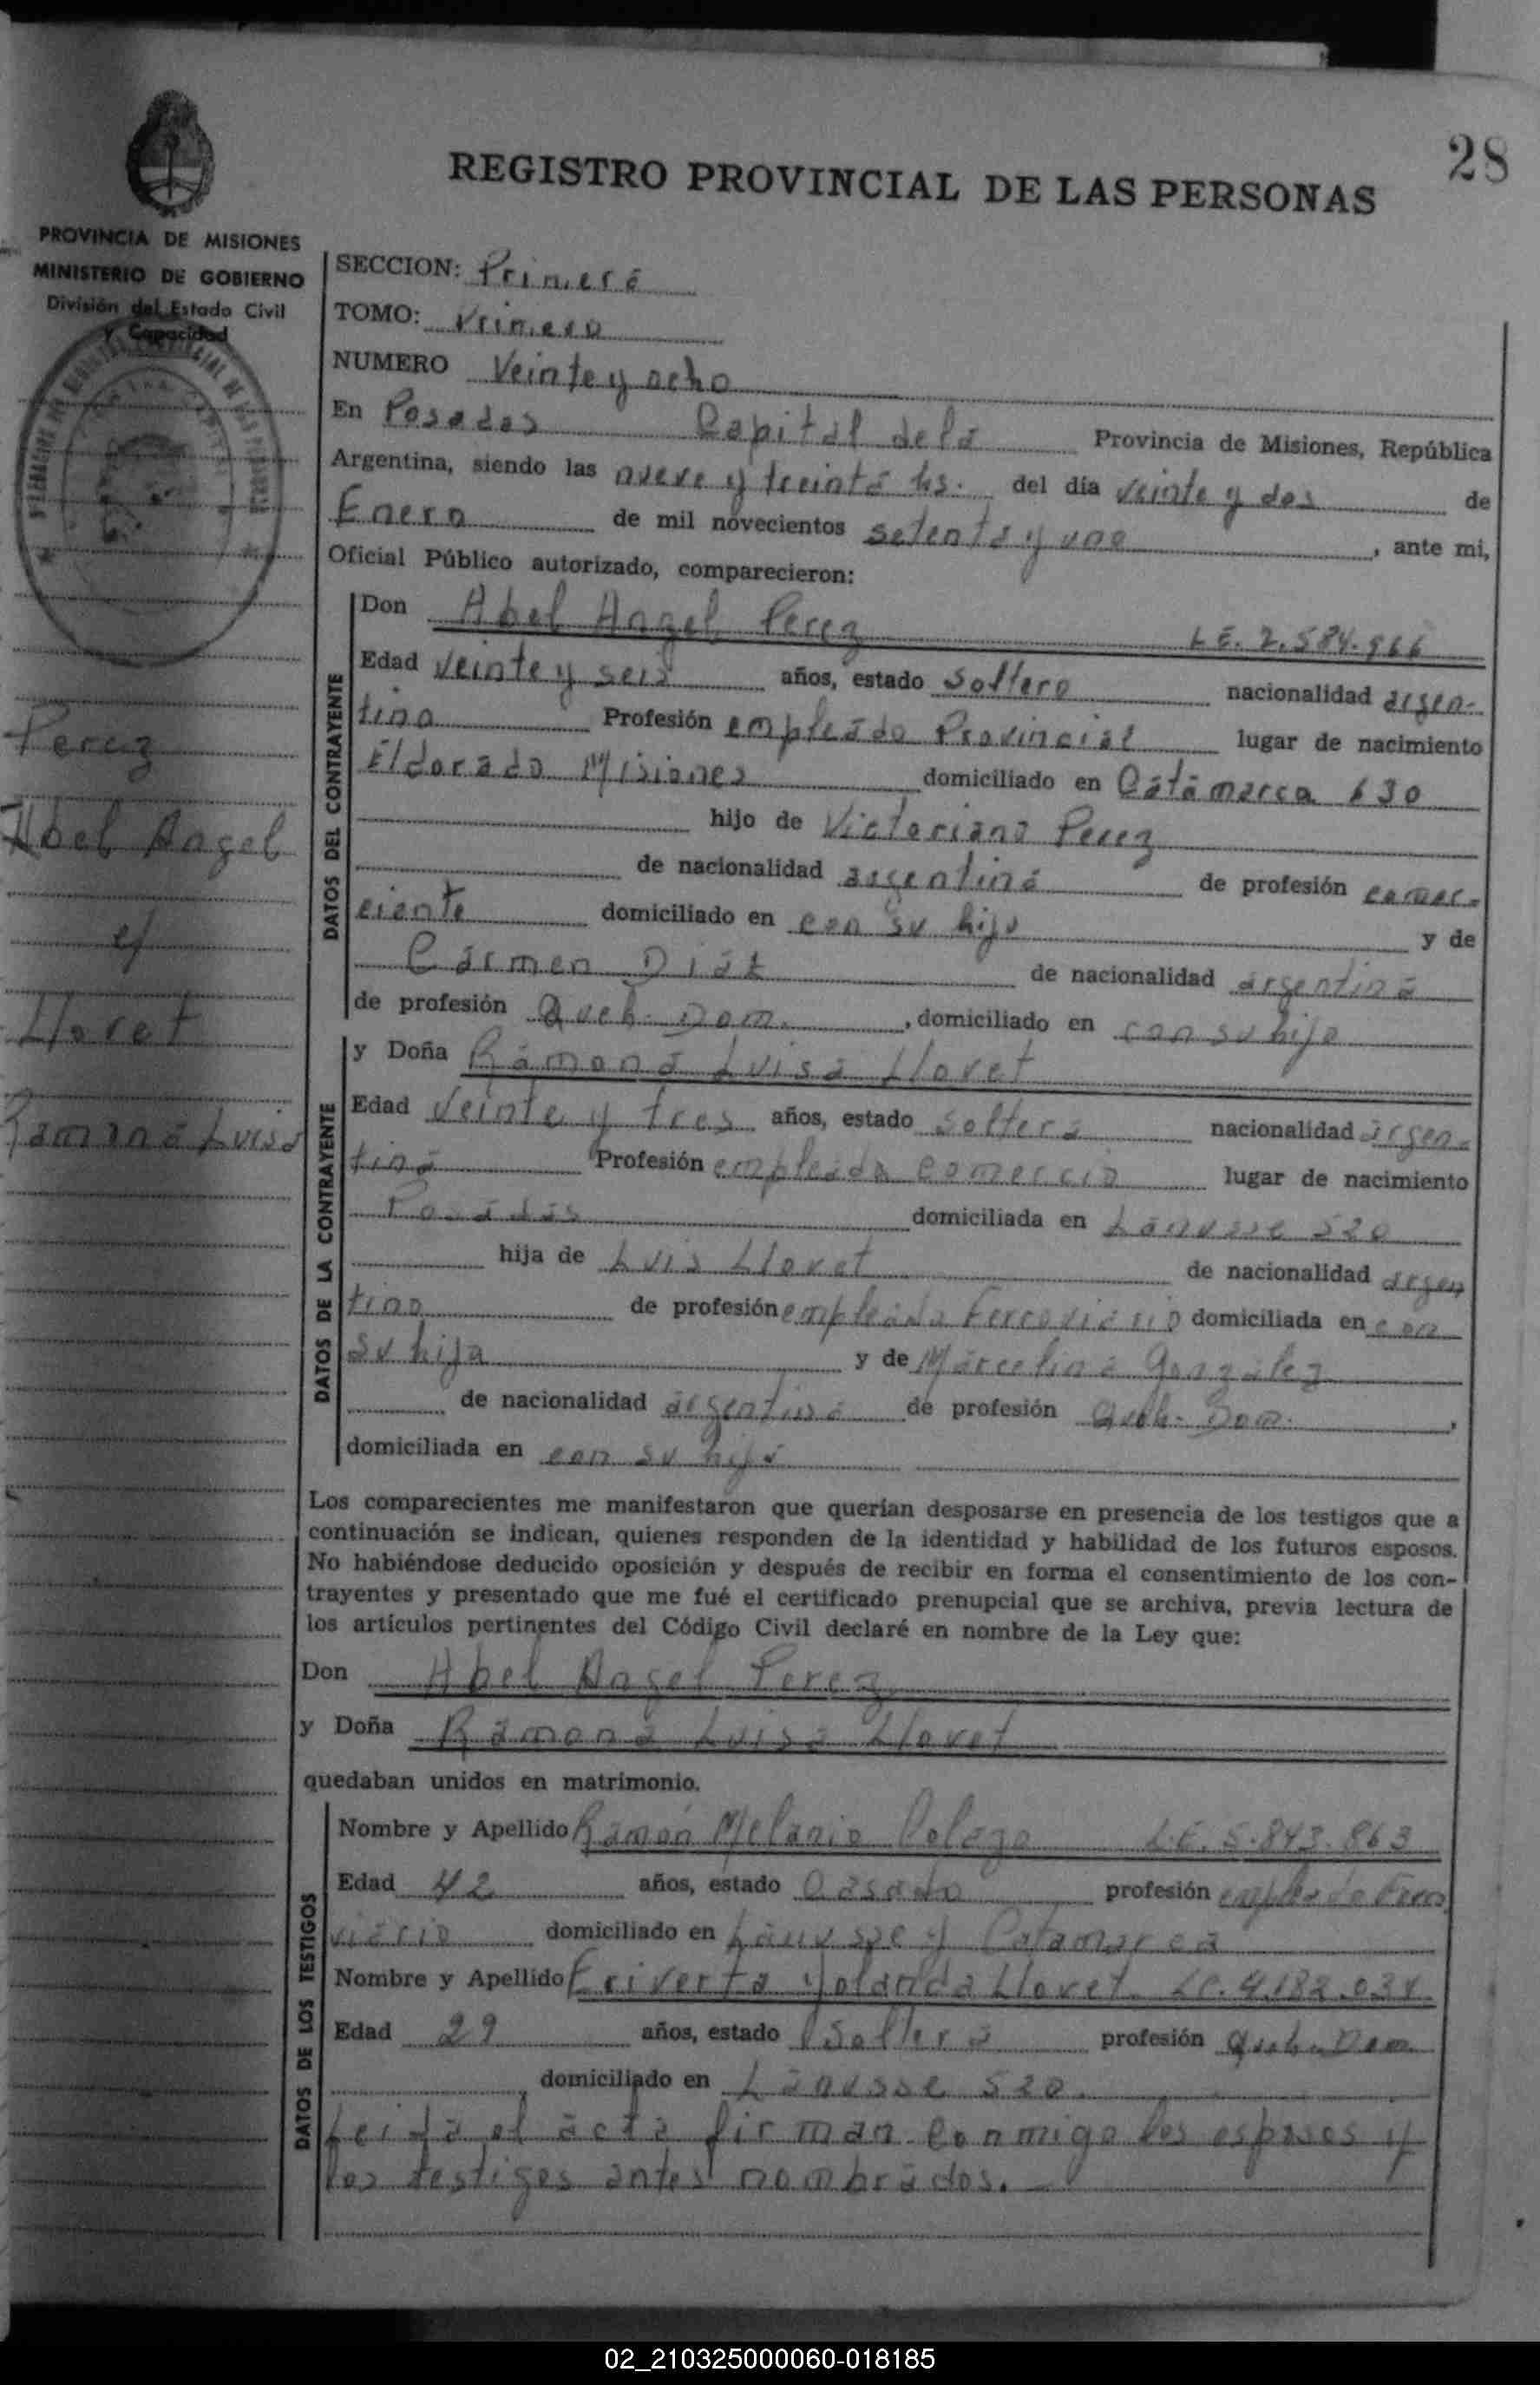 28
REGISTRO PROVINCIAL DE LAS PERSONAS
PROVINCIA DE MISIONES
MINISTERIO DE GOBIERNO
División del Estado Civil
y Capacidad
Perez
Abel Angel
c/
Lloret
Ramona Luisa
SECCION: Primera
TOMO: Primero
NUMERO Veinte y ocho
En Posadas Capital de la Provincia de Misiones, República
Argentina, siendo las nueve y treinta hs. del día veinte y dos de
Enero de mil novecientos setenta y uno, ante mi,
Oficial Público autorizado, comparecieron:
DATOS DEL CONTRAYENTE
Don Abel Angel Perez L.E. 7.584.966
Edad veinte y seis años, estado soltero nacionalidad argen-
tino Profesión empleado Provincial lugar de nacimiento
Eldorado Misiones domiciliado en Catamarca 630
hijo de Victoriano Perez
de nacionalidad argentina de profesión comer-
ciante domiciliado en con su hijo y de
Carmen de nacionalidad argentina
de profesión Queh. Dom., domiciliado en con su hijo
DATOS DE LA CONTRAYENTE
y Doña Ramona Luisa Lloret
Edad Veinte y tres años, estado soltera nacionalidad argen-
tina Profesión empleada comercio lugar de nacimiento
Posadas domiciliada en Lanusse 520
hija de Luis Lloret de nacionalidad argen
tino de profesión empleado Ferroviario domiciliada en con
su hija y de Marcelina Gonzalez
de nacionalidad argentina de profesión Queh. Dom.,
domiciliada en con su hija
Los comparecientes me manifestaron que querían desposarse en presencia de los testigos que a
continuación se indican, quienes responden de la identidad y habilidad de los futuros esposos.
No habiéndose deducido oposición y después de recibir en forma el consentimiento de los con-
trayentes y presentado que me fué el certificado prenupcial que se archiva, previa lectura de
los artículos pertinentes del Código Civil declaré en nombre de la Ley que:
Don Abel Angel Perez
y Doña Ramona Luisa Lloret
quedaban unidos en matrimonio.
DATOS DE LOS TESTIGOS
Nombre y Apellido Ramón Melanio L.E. 5.843.863
Edad 42 años, estado Casado profesión empleado Ferro
viario domiciliado en Lanusse y Catamarca
Nombre y Apellido Eriverta Yolanda Lloret L.C. 4.182.034
Edad 29 años, estado Soltera profesión Queh. Dom.
, domiciliado en Lanusse 520.
Leida el acta firman conmigo los esposos y
los testigos antes nombrados.
02_210325000060-018185